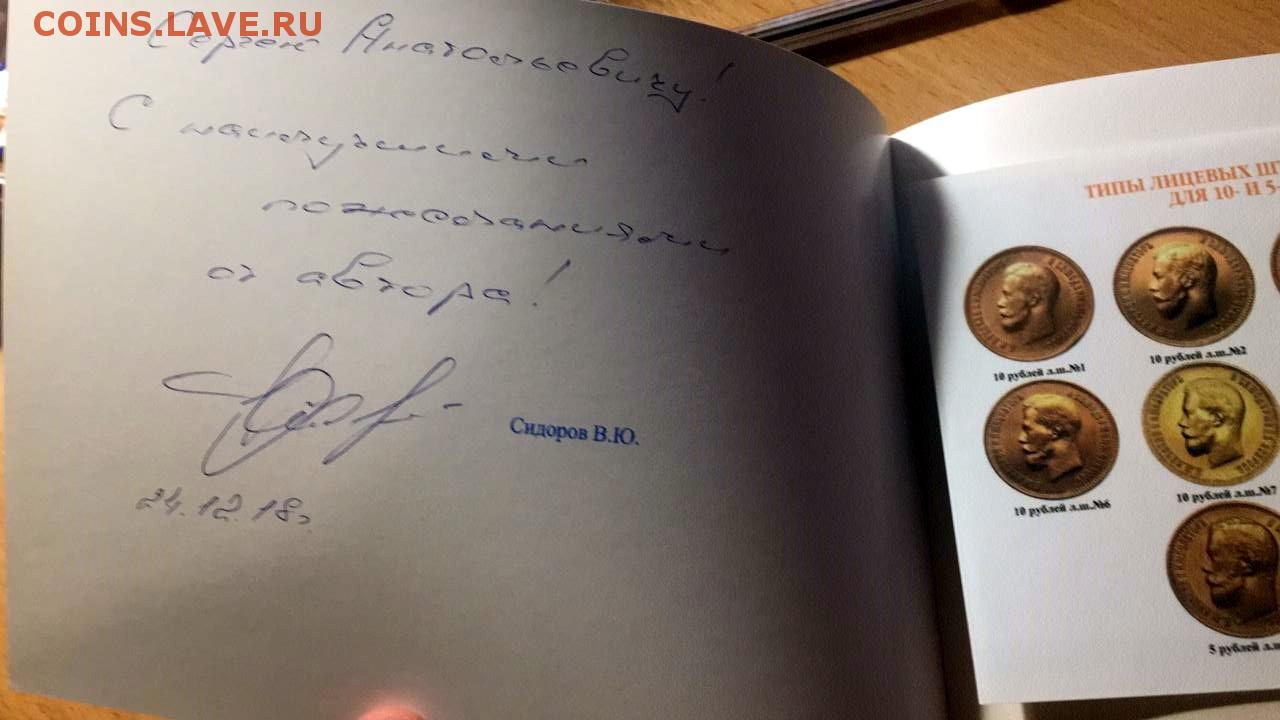 COINS.LAVE.RU
Сергею Анатольевичу!
С наилучшими
пожеланиями
от автора!
Сидоров В.Ю.
24.12.18г.
ТИПЫ ЛИЦЕВЫХ ШТ
ДЛЯ 10- И 5-
10 рублей л.ш.№1
10 рублей л.ш.№2
10 рублей л.ш.№6
10 рублей л.ш.№7
5 рублей л.ш